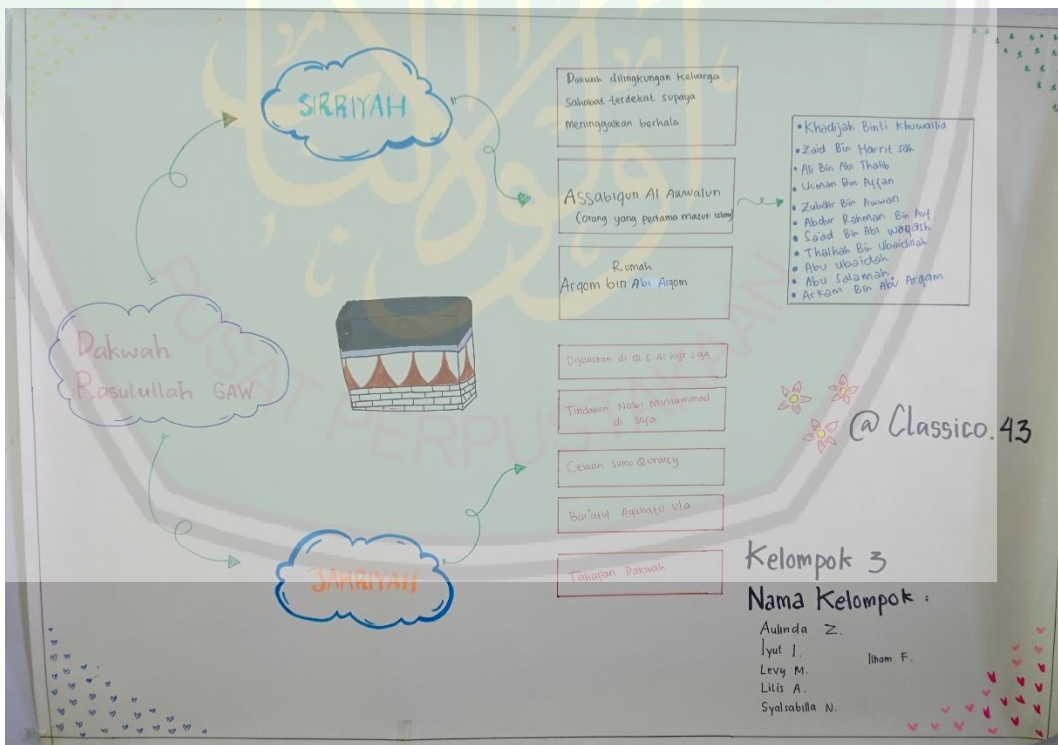 SIRRIYAH
Dakwah dilingkungan keluarga
Sahabat terdekat supaya
meninggalkan berhala
Assabiqun Al Auwalun
(orang yang pertama masuk islam)
Rumah
Arqom bin Abi Arqom
• Khadijah Binti Khuwailid
• Zaid Bin Harrit sah
• Ali Bin Abi Thalib
• Usman Bin Affan
• Zubair Bin Awwan
• Abdur Rohman Bin Auf
• Sa'ad Bin Abi Waqash
• Thalhah Bin Ubaidillah
• Abu Ubaidah
• Abu Salamah
• Arkam Bin Abu Arqam
Dakwah
Rasulullah SAW
Dijelaskan di Q.S. Al hijr : 94
Tindakan Nabi Muhammad
di Safa
Celaan suku Quraisy
Bai'atul Aqabatil Ula
Tahapan Dakwah
JAHRIYAH
@Classico.43
Kelompok 3
Nama Kelompok :
Aulinda Z.
Iyut I.
Levy M.
Lilis A.
Syalsabilla N.
Ilham F.
PUSAT PERPUSTAKAAN